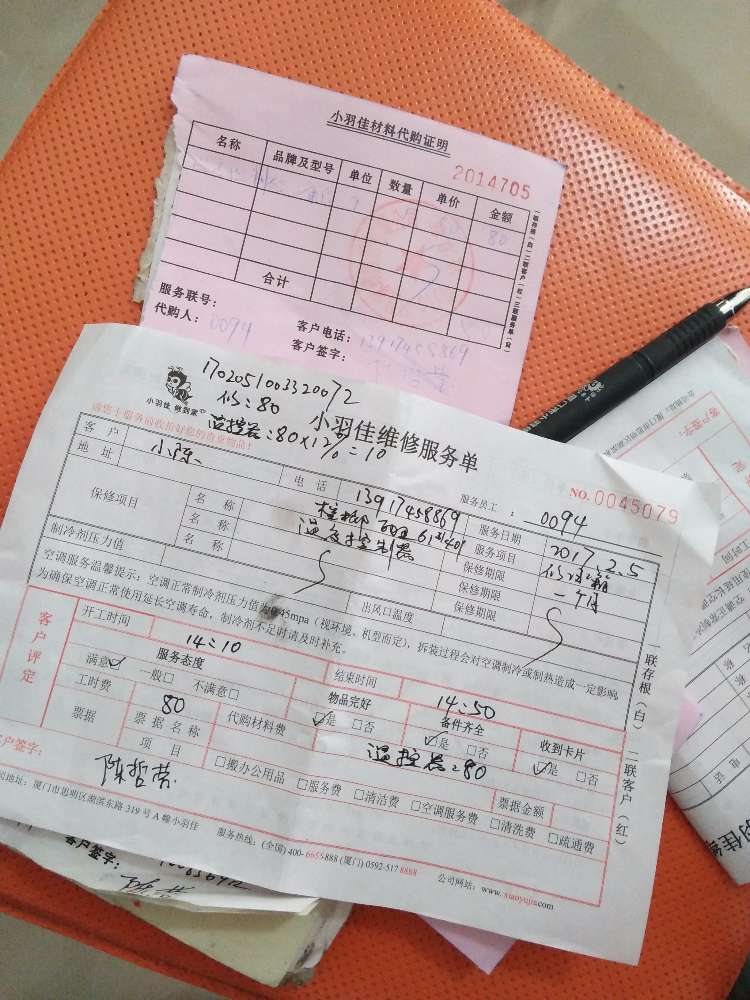 小羽佳材料代购证明
2014705
名称 品牌及型号 单位 数量 单价 金额
80
合计
服务联号：
代购人： 0094
客户电话： 13917458869
客户签字：
1702051003320072
修：80
温控器：80×12%=10
小羽佳 做到家
小羽佳维修服务单
NO. 0045079
客户 小陈 电话 13917458869 服务员工： 0094
地址 服务日期 2017.2.5
保修项目 名称 服务项目 修冰箱
名称 温度控制器 保修期限 一个月
名称 保修期限
制冷剂压力值 出风口温度 保修期限
空调服务温馨提示：空调正常制冷剂压力值为0.45mpa（视环境、机型而定），拆装过程会对空调制冷或制热造成一定影响
为确保空调正常使用延长空调寿命，制冷剂不足时请及时补充。
客户评定
开工时间 14:10 结束时间 14:50
服务态度 物品完好 备件齐全 收到卡片
满意☑ 一般□ 不满意□ ☑是 □否 ☑是 □否 ☑是 □否
工时费 80 代购材料费 温控器：80
票据 票据名称 票据金额
项目 □搬办公用品 □服务费 □清洁费 □空调服务费 □清洗费 □疏通费
客户签字： 陈哲荣
地址：厦门市思明区湖滨东路319号A幢小羽佳 服务热线：(全国) 400-6655-888 (厦门) 0592-5178888 公司网站：www.xiaoyujia.com
一联存根（白） 二联客户（红）
客户签字：